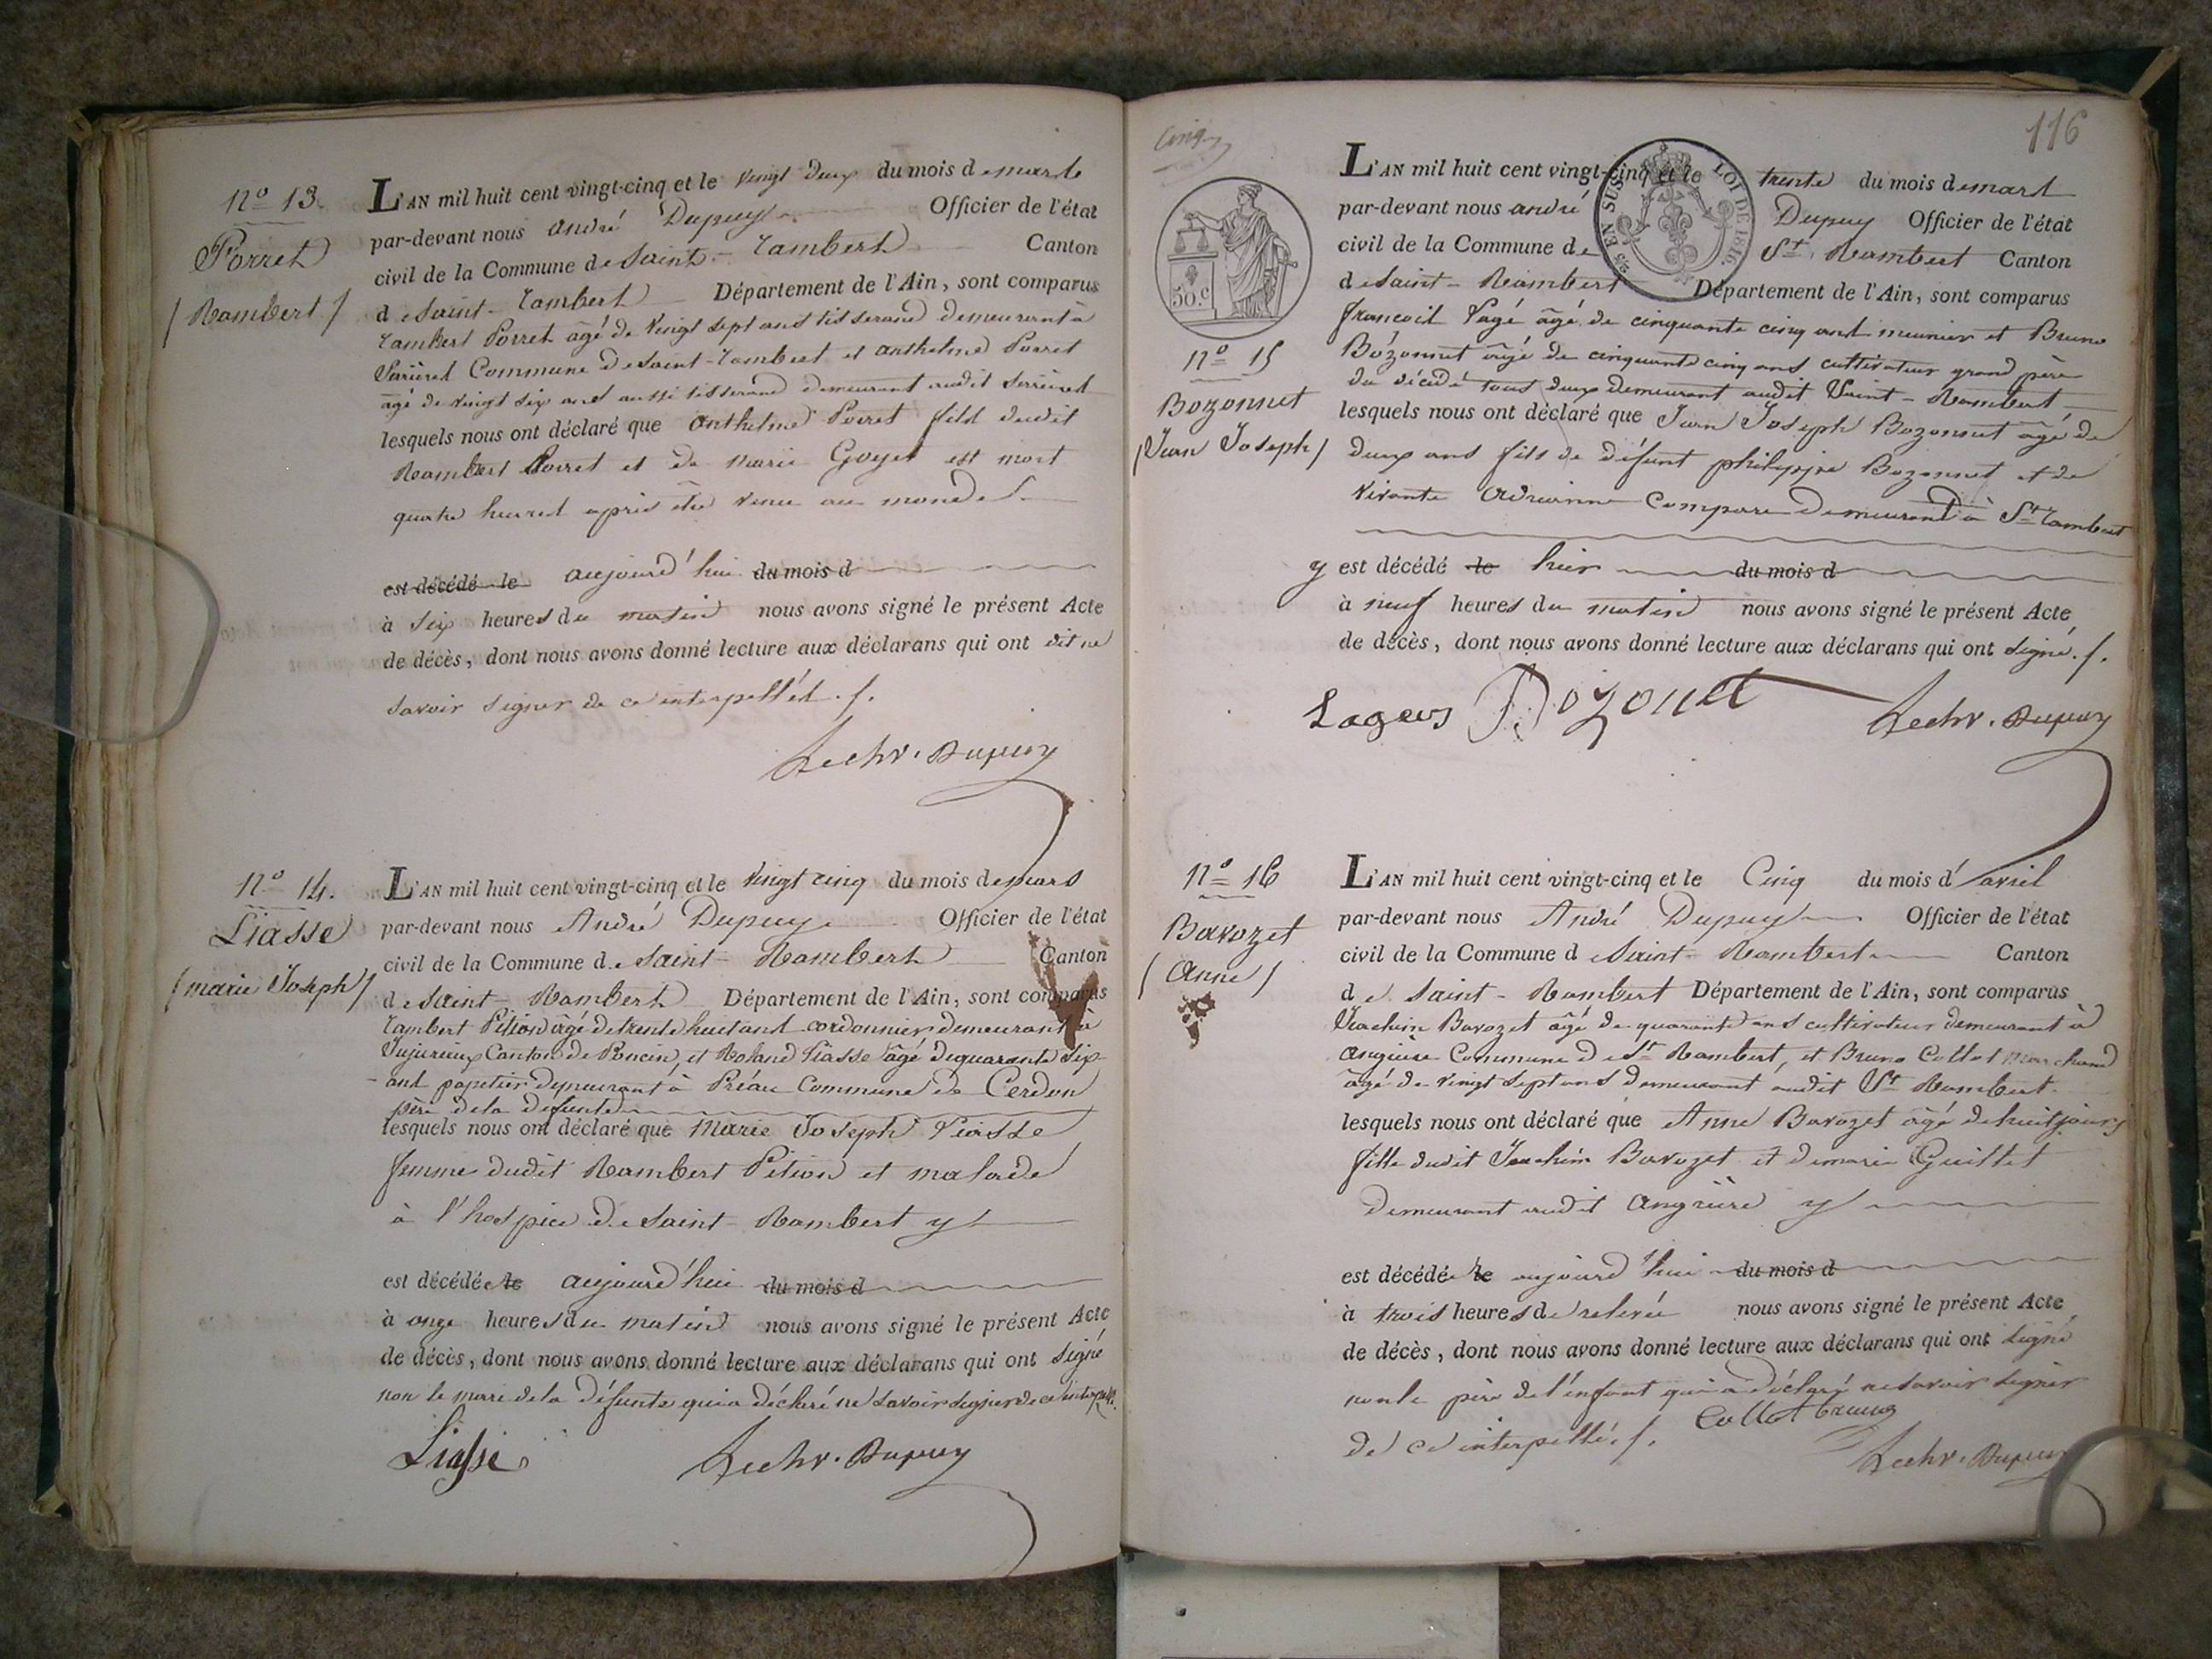 N° 13.
Porret
(Rambert)
L'AN mil huit cent vingt-cinq et le vingt deux du mois de mars
par-devant nous andré Dupuy Officier de l'état
civil de la Commune de Saint-Rambert Canton
de Saint-Rambert Département de l'Ain, sont comparus
Rambert Porret âgé de vingt sept ans tisserand demeurant à
Commune de Saint-Rambert et anthelme Porret
âgé de vingt six ans aussi tisserand demeurant audit
lesquels nous ont déclaré que anthelme Porret fils dudit
Rambert Porret et de marie Goyet est mort
quatre heures après être venu au monde
est décédé le aujourd'hui du mois d
à six heures du matin nous avons signé le présent Acte
de décès, dont nous avons donné lecture aux déclarans qui ont dit ne
savoir signer de ce interpellés.
Dupuy
N° 14.
Liasse
(marie Joseph)
L'AN mil huit cent vingt-cinq et le vingt cinq du mois de mars
par-devant nous André Dupuy Officier de l'état
civil de la Commune de Saint-Rambert Canton
de Saint-Rambert Département de l'Ain, sont comparus
Rambert Pétion âgé de trente huit ans cordonnier demeurant à
Jujurieux Canton de Poncin, et Roland Liasse âgé de quarante six
ans papetier demeurant à Préau Commune de Cerdon
père de la défunte
lesquels nous ont déclaré que Marie Joseph Liasse
femme dudit Rambert Pétion et malade
à l'hospice de Saint-Rambert y
est décédée le aujourd'hui du mois d
à onze heures du matin nous avons signé le présent Acte
de décès, dont nous avons donné lecture aux déclarans qui ont signé
non le mari de la défunte qui a déclaré ne savoir signer de ce interpellé.
Liasse
Dupuy
116
50.c
25 EN SUS. LOI DE 1816.
N° 15
Bozonnet
(Jean Joseph)
L'AN mil huit cent vingt-cinq et le trente du mois de mars
par-devant nous andré Dupuy Officier de l'état
civil de la Commune de St. Rambert Canton
de Saint-Rambert Département de l'Ain, sont comparus
françois âgé de cinquante cinq ans meunier et Bruno
Bozonnet âgé de cinquante cinq ans cultivateur grand père
du décédé tous deux demeurant audit Saint-Rambert
lesquels nous ont déclaré que Jean Joseph Bozonnet âgé de
deux ans fils de défunt philippe Bozonnet et de
vivante demeurant à St. Rambert
y est décédé le hier du mois d
à neuf heures du matin nous avons signé le présent Acte
de décès, dont nous avons donné lecture aux déclarans qui ont signé.
Bozonet
Dupuy
N° 16
Bavozet
(Anne)
L'AN mil huit cent vingt-cinq et le Cinq du mois d'avril
par-devant nous André Dupuy Officier de l'état
civil de la Commune de Saint-Rambert Canton
de Saint-Rambert Département de l'Ain, sont comparus
Joachim Bavozet âgé de quarante ans cultivateur demeurant à
angrière Commune de St. Rambert, et Bruno Collot marchand
âgé de vingt sept ans demeurant audit St. Rambert.
lesquels nous ont déclaré que Anne Bavozet âgé de huit jours
fille dudit Joachim Bavozet et de marie Guillet
demeurant audit angrière y
est décédée le aujourd'hui du mois d
à trois heures de relevée nous avons signé le présent Acte
de décès, dont nous avons donné lecture aux déclarans qui ont signé
non le père de l'enfant qui a déclaré ne savoir signer
de ce interpellé. Collot bruno
Dupuy